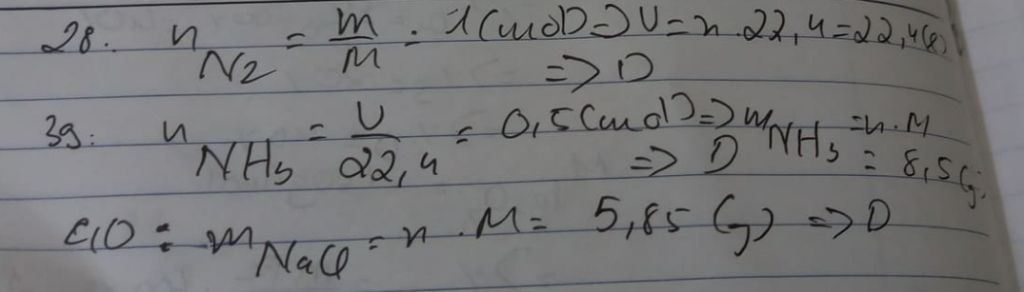 28. n N2 = m/M = 1 (mol) => V = n . 22,4 = 22,4(l)
=> D
39: n NH3 = V/22,4 = 0,5 (mol) => m NH3 = n.M
=> D = 8,5 (g)
40: m NaCl = n . M = 5,85 (g) => D